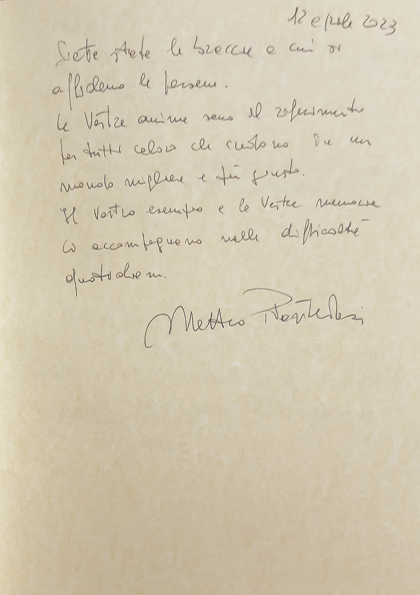 12 aprile 2023
Siete state le braccia a cui si
affidano le persone.
Le Vostre anime sono il riferimento
per tutti coloro che credono in un
mondo migliore e più giusto.
Il Vostro esempio e la Vostra memoria
ci accompagnano nelle difficoltà
quotidiane.
Matteo Piantedosi